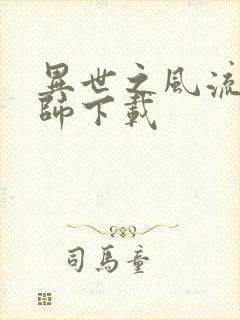 異世之風流
師下載
司馬童